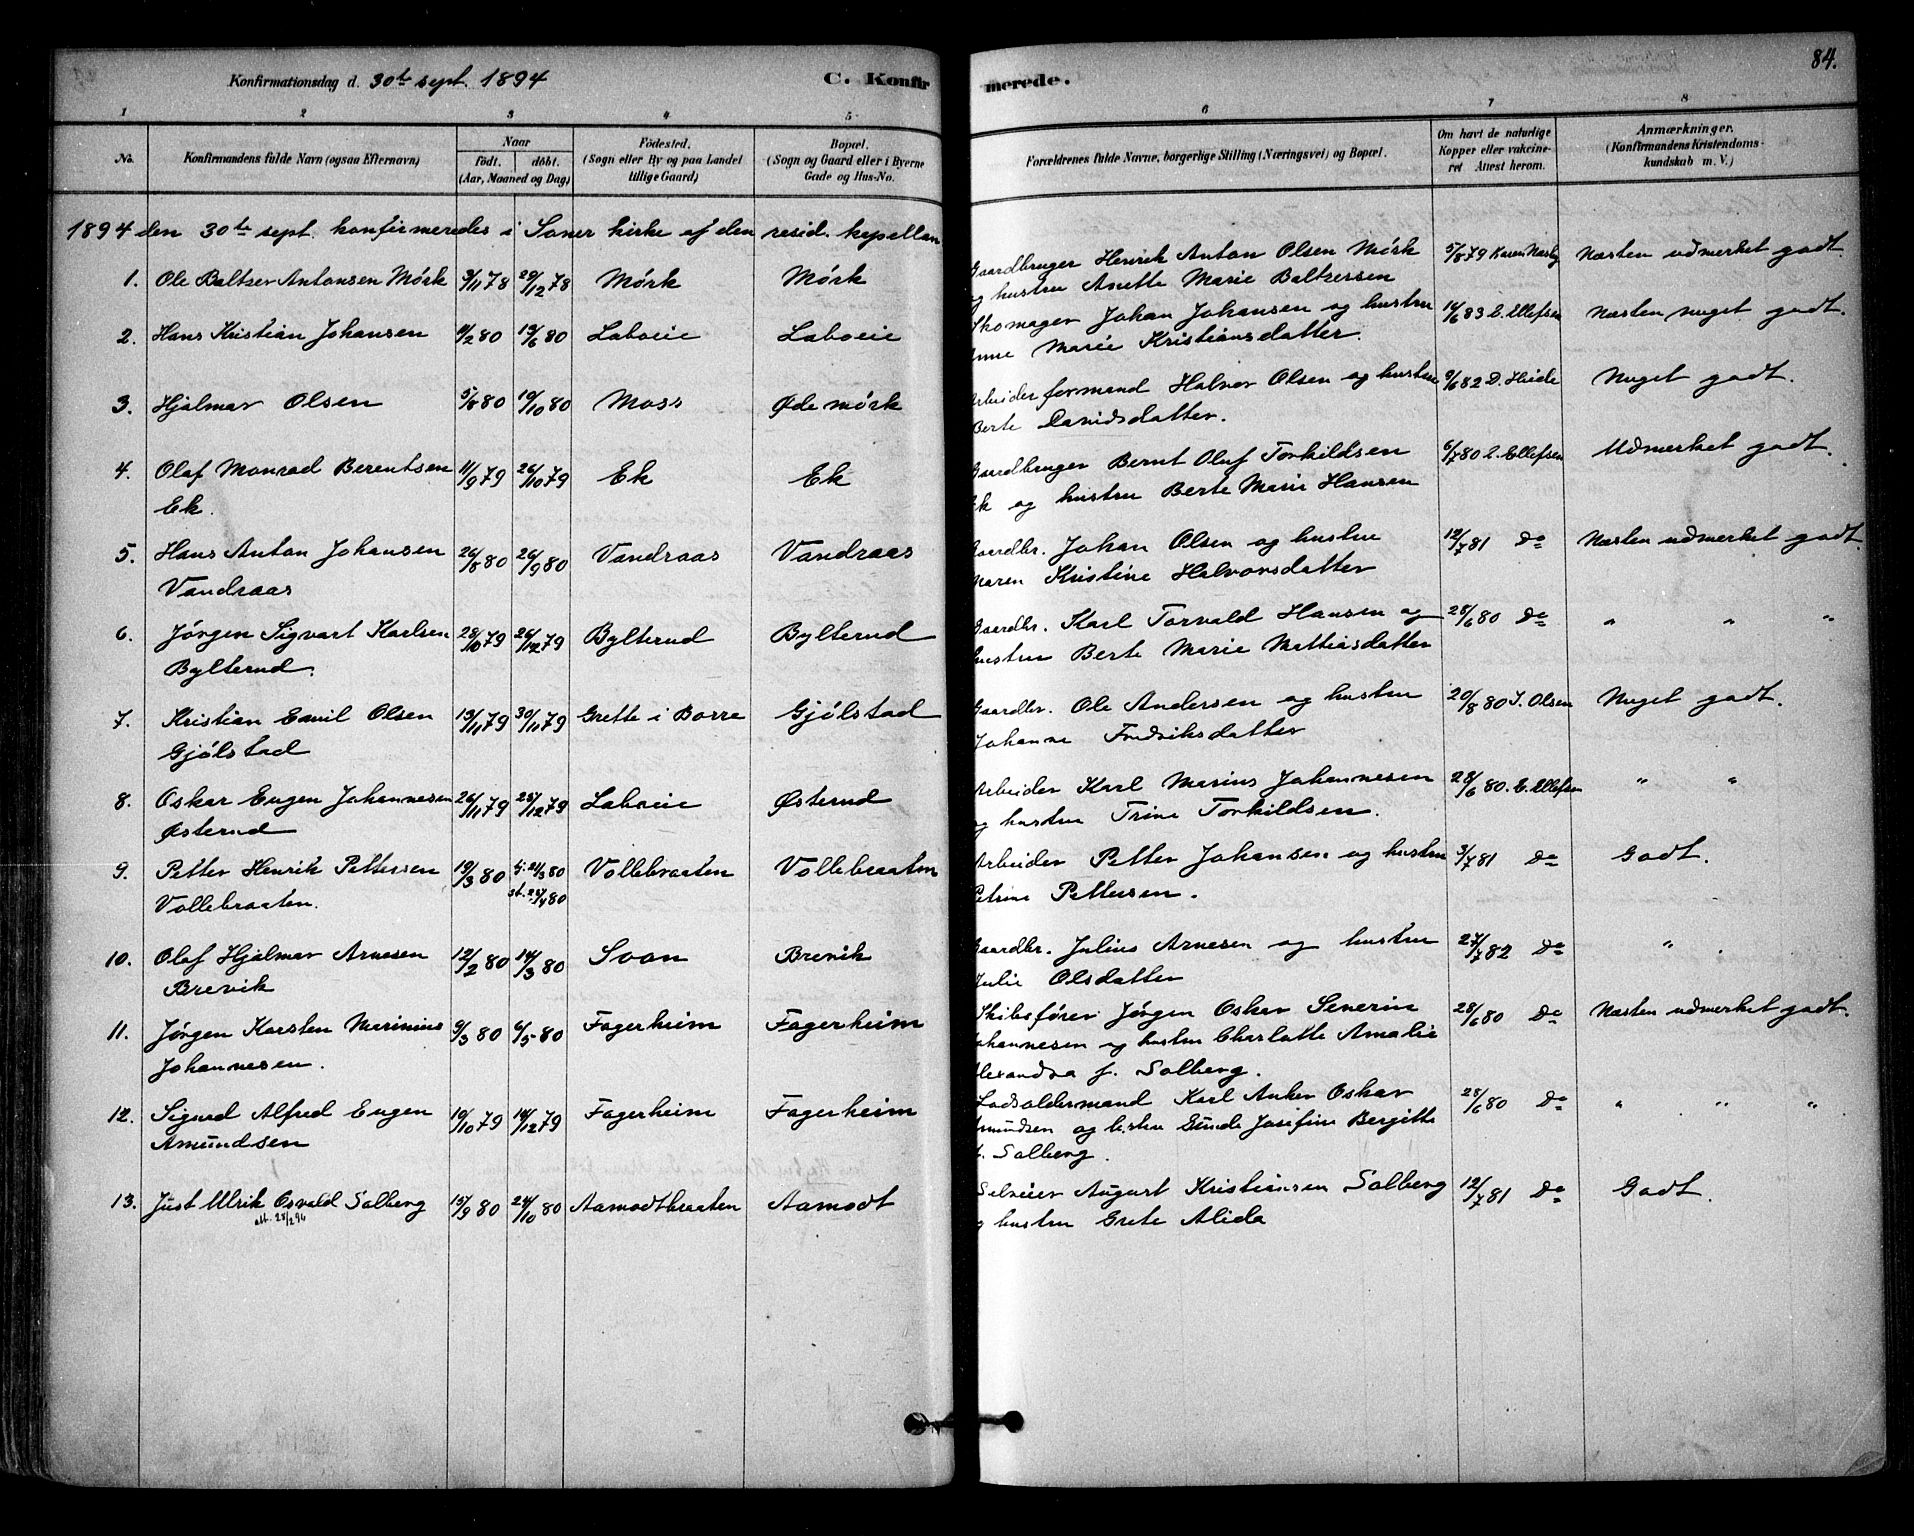 Konfirmationsdag d. 30te sept. 1894 C. Konfir merede. 84.
1 2 3 4 5 6 7 8
No. Konfirmandens fulde Navn (ogsaa Efternavn) Naar født. døbt. (Aar, Maaned og Dag) Fødested. (Sogn eller By og paa Landet tillige Gaard) Bopæl. (Sogn og Gaard eller i Byerne Gade og Hus-No. Forældrenes fulde Navne, borgerlige Stilling (Næringsvei) og Bopæl. Om havt de naturlige Kopper eller vakcineret Attest herom. Anmærkninger. (Konfirmandens Kristendomskundskab m. V.)
1894 den 30te sept. konfirmeredes i Soner kirke af den resid. kapellan
1. Ole Baltzer Antonsen Mørk 3/11 78 29/12 78 Mørk Mørk Gaardbruger Henrik Anton Olsen Mørk 5/8 79 Karen Næsby Næsten udmerket godt.
og hustru Anette Marie Baltzersen
2. Hans Kristian Johansen 11/2 80 13/6 80 Laboeie Laboeie Skomager Johan Johansen og hustru 14/6 83 E. Ellefsen Næsten meget godt.
Anne Marie Kristiansdatter.
3. Hjalmar Olsen 5/8 80 19/10 80 Moss Øde mørk Arbeiderformand Halvor Olsen og hustru 9/6 82 D. Heide Meget godt.
Berte Davidsdatter.
4. Olaf Monrad Berentsen 11/9 79 26/10 79 Ek Ek Gaardbruger Bernt Oluf Torkildsen 6/7 80 E. Ellefsen Udmerket godt.
Ek. Ek og hustru Berte Marie Hansen
5. Hans Anton Johansen 26/8 80 26/9 80 Vandraas Vandraas Gaardbr. Johan Olsen og hustru 12/7 81 Do Næsten udmerket godt.
Vandraas Maren Kristine Halvorsdatter
6. Jørgen Sigvart Karlsen 28/10 79 26/12 79 Bylterud Bylterud Gaardbr. Karl Torvald Hansen og 28/6 80 Do " " "
Bylterud. hustru Berte Marie Mathiasdatter
7. Kristian Emil Olsen 13/11 79 30/11 79 Grette i Borre Gjølstad Gaardbr. Ole Andersen og hustru 20/8 80 J. Olsen Meget godt.
Gjølstad Johanne Fredriksdatter
8. Oskar Eugen Johannesen 26/11 79 25/12 79 Laboeie Østerud Arbeider Karl Marius Johannesen 28/6 80. E. Ellefsen " "
Østerud og hustru Trine Torkildsen.
9. Petter Henrik Pettersen 19/3 80 hj. 21/3 80 Vollebraaten Vollebraaten Arbeider Petter Johansen og hustru 3/7 81 Do Godt.
Vollebraaten. st. 25/4 80 Petrine Pettersen.
10. Olaf Hjalmar Arnesen 12/2 80 14/3 80 Soon Brevik Gaardbr. Julius Arnesen og hustru 27/7 82 Do " .
Brevik Julie Olsdatter
11. Jørgen Karsten Marinius 9/3 80 6/5 80 Fagerheim Fagerheim Skibsfører Jørgen Oskar Severin 28/6 80 Do Næsten udmerket godt.
Johannesen. Johannesen og hustru Charlotte Amalie
Alexandra f. Solberg.
12. Sigurd Alfred Eugen 19/10 79 14/12 79 Fagerheim Fagerheim Lodsoldermand Karl Anker Oskar 28/6 80 Do " " "
Amundsen Amundsen og hustru Gunde Josefine Bergitte
f. Solberg.
13. Just Ulrik Osvald Solberg 15/9 80 24/10 80 Aamodtbraaten Aamodt Selveier August Kristiansen Solberg 12/7 81 Do Godt.
att. 28/2 96 og hustru Grete Alida